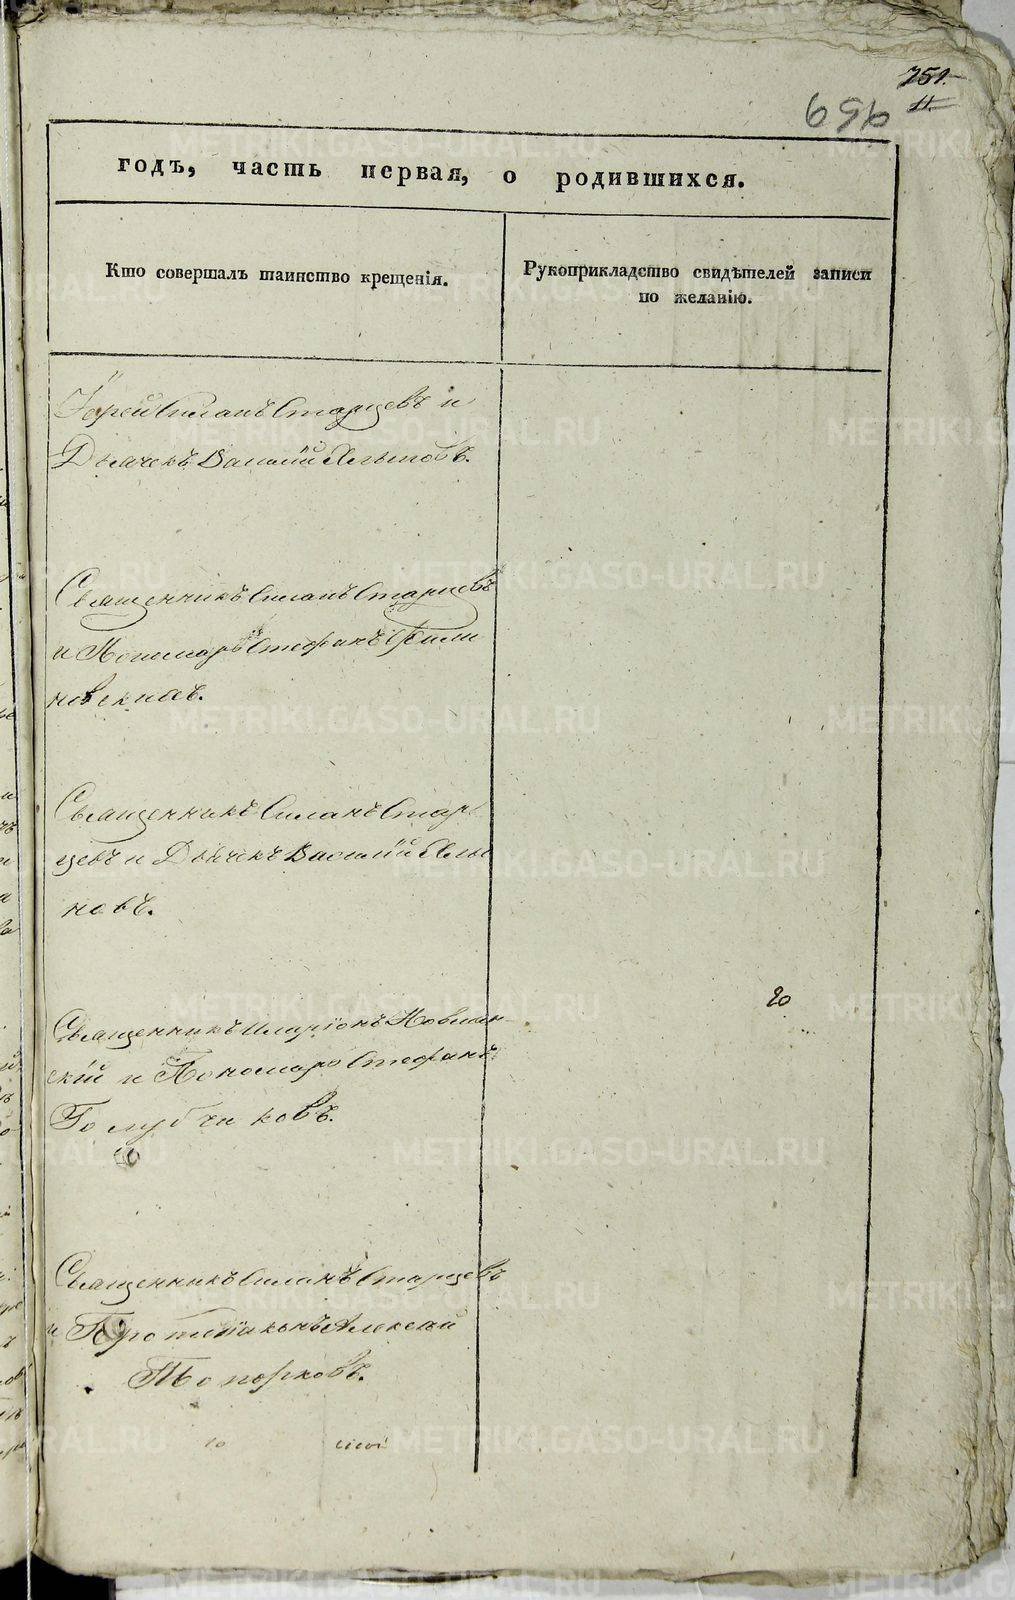 751.
11.
656
годъ, часть первая, о родившихся.
Кто совершалъ таинство крещенія.
Рукоприкладство свидѣтелей записи
по желанію.
Іерей Силанъ Старцевъ и
Дьячекъ Василій
Священникъ Силанъ Старцевъ
и Пономарь Стефанъ
Священникъ Силанъ Стар
цевъ и Дьячекъ Василій
новъ.
20
Священникъ Иларіонъ
скій и Пономарь Стефанъ
Голубчиковъ.
Священникъ Силанъ Старцевъ
и Протодіаконъ Алексѣй
Топорковъ.
METRIKI.GASO-URAL.RU